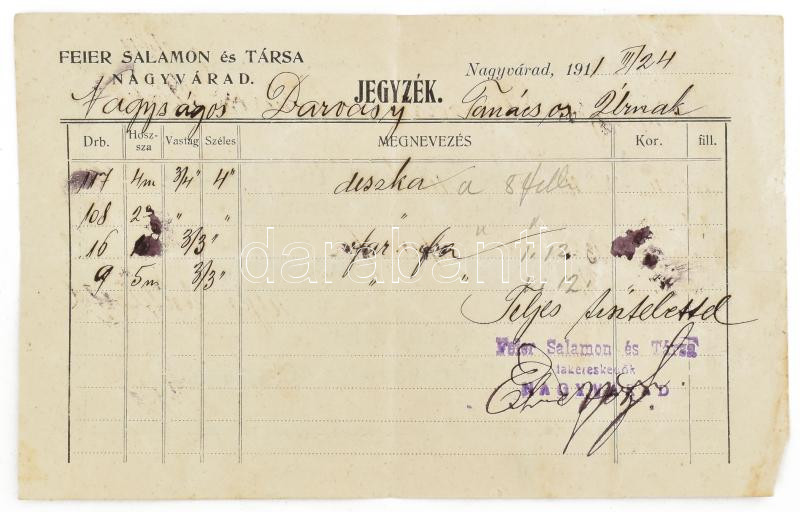 FEIER SALAMON és TÁRSA
NAGYVÁRAD.
Nagyvárad, 1911 III/24
JEGYZÉK.
Nagyságos Darvasy Tanácsos Úrnak
Drb. Hosz-sza Vastag Széles MEGNEVEZÉS Kor. fill.
117 4m 3/4" 4" deszka a 8 fill
108 " " "
16 3/3" fa
9 5m 3/3" " " 12
Teljes tisztelettel
Feier Salamon és Társa
fakereskedők
NAGYVÁRAD
darabanth